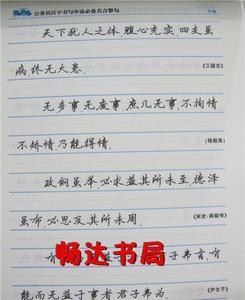 公务员汉字书写申论必备名言警句
天下犹人之体,腹心充实,四支虽
病,终无大患. (三国志)
无多事无废事,庶几无事,不徇情
不矫情乃能得情. (程祖洛)
政纲虽举必求益其所未至德泽
虽布,必思及其所未周. (宋史·薛极传)
畅达书局
有 子弗言,有
能而无益于事者君子弗为 (尹文子)